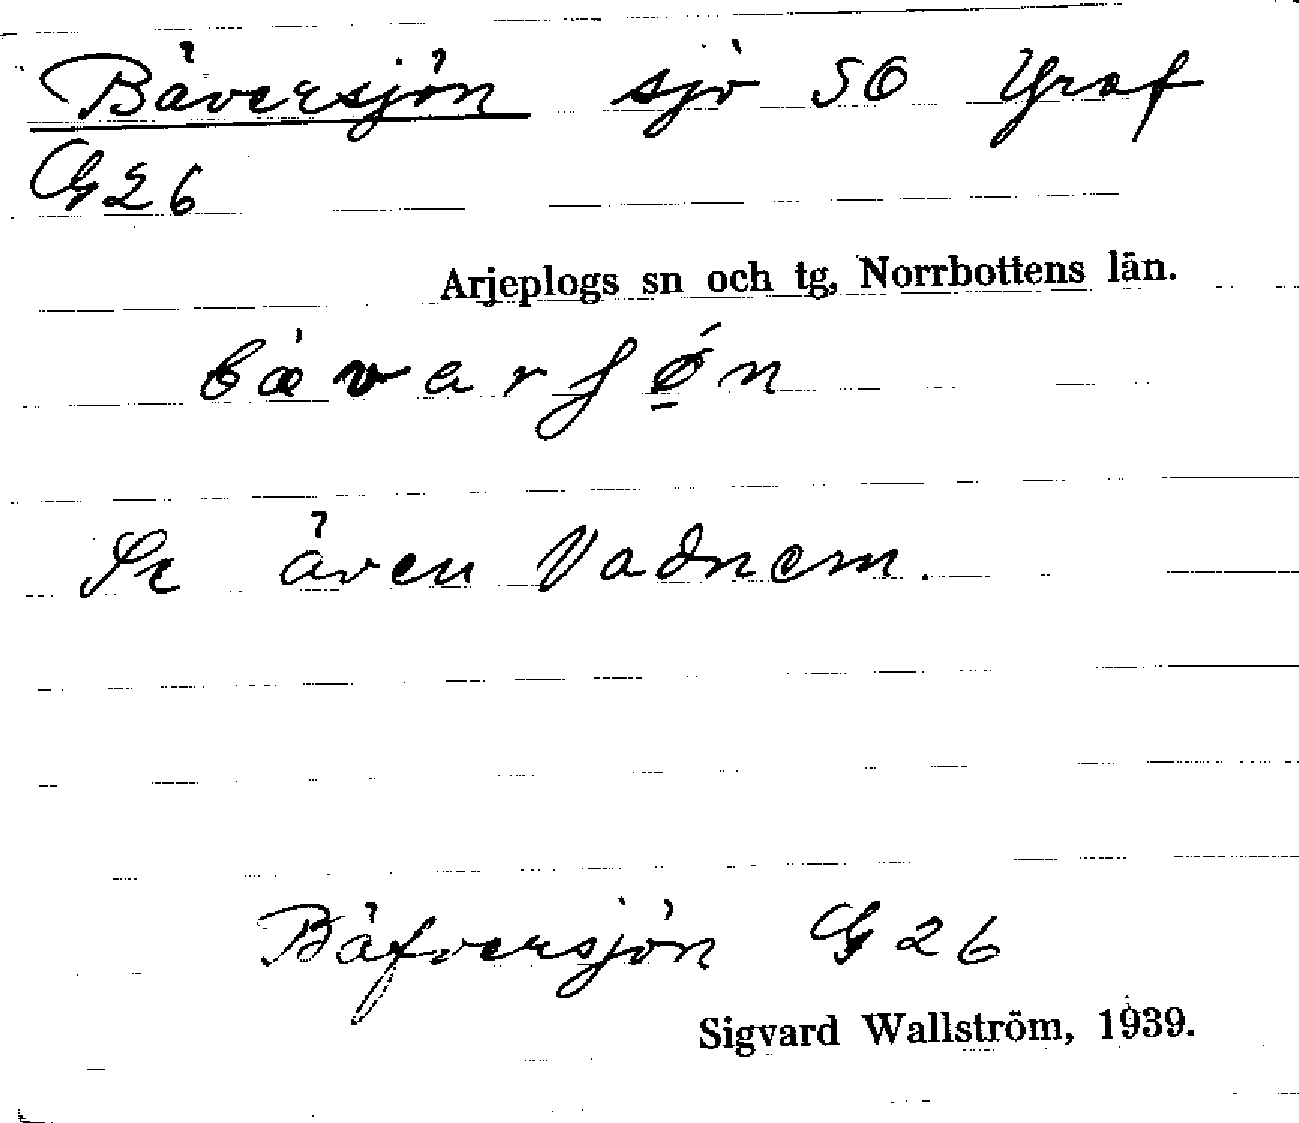 Bäversjön sjö SO Graf
G26
Arjeplogs sn och tg, Norrbottens län.
bǽvarʃǿ̱n
Se även Vadnem.
Bäfversjön G26
Sigvard Wallström, 1939.